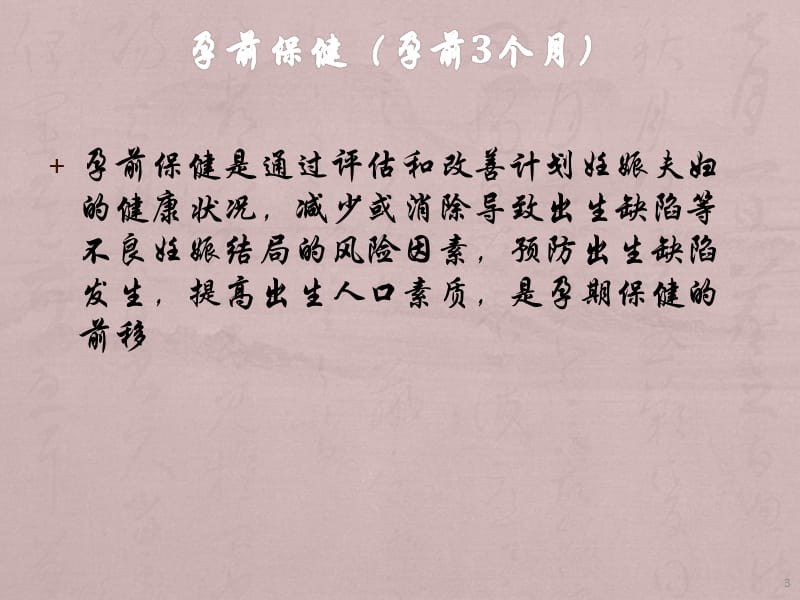 孕前保健（孕前3个月）
+ 孕前保健是通过评估和改善计划妊娠夫妇
的健康状况，减少或消除导致出生缺陷等
不良妊娠结局的风险因素，预防出生缺陷
发生，提高出生人口素质，是孕期保健的
前移
3